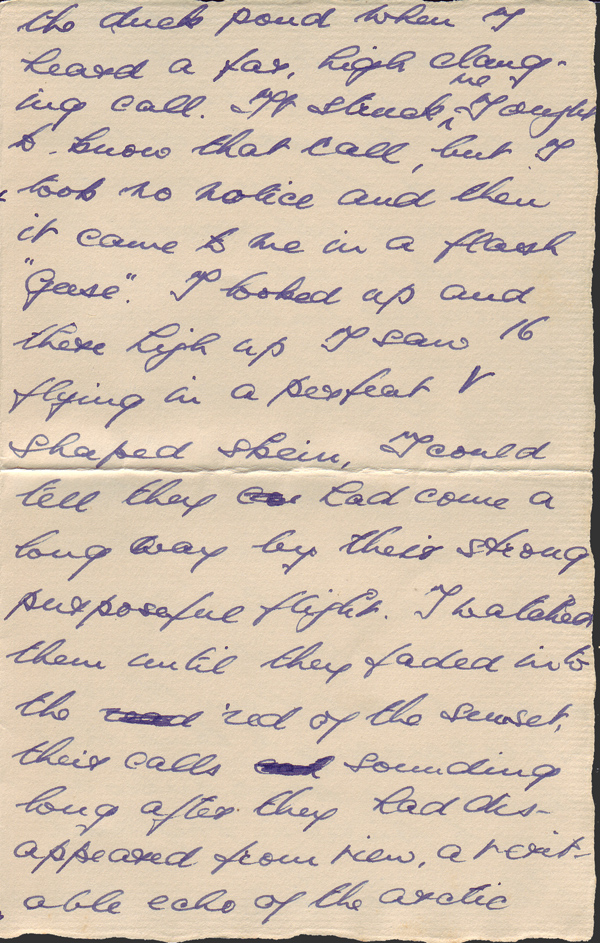 the duck pond when I
heard a far, high clang-
ing call. It struck me I ought
to know that call, but I
took no notice and then
it came to me in a flash
"Geese". I looked up and
there high up I saw 16
flying in a perfect V
shaped skein, I could
tell they had come a
long way by their strong
purposeful flight. I watched
them until they faded into
the red of the sunset,
their calls sounding
long after they had dis-
appeared from view, a verit-
able echo of the arctic